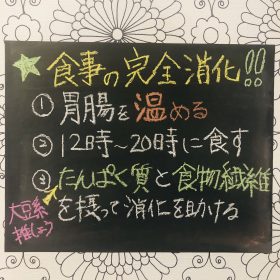 ★食事の完全消化!!
①胃腸を温める
②12時~20時に食す
③たんぱく質と食物繊維
を摂って消化を助ける
大豆系
推しょう